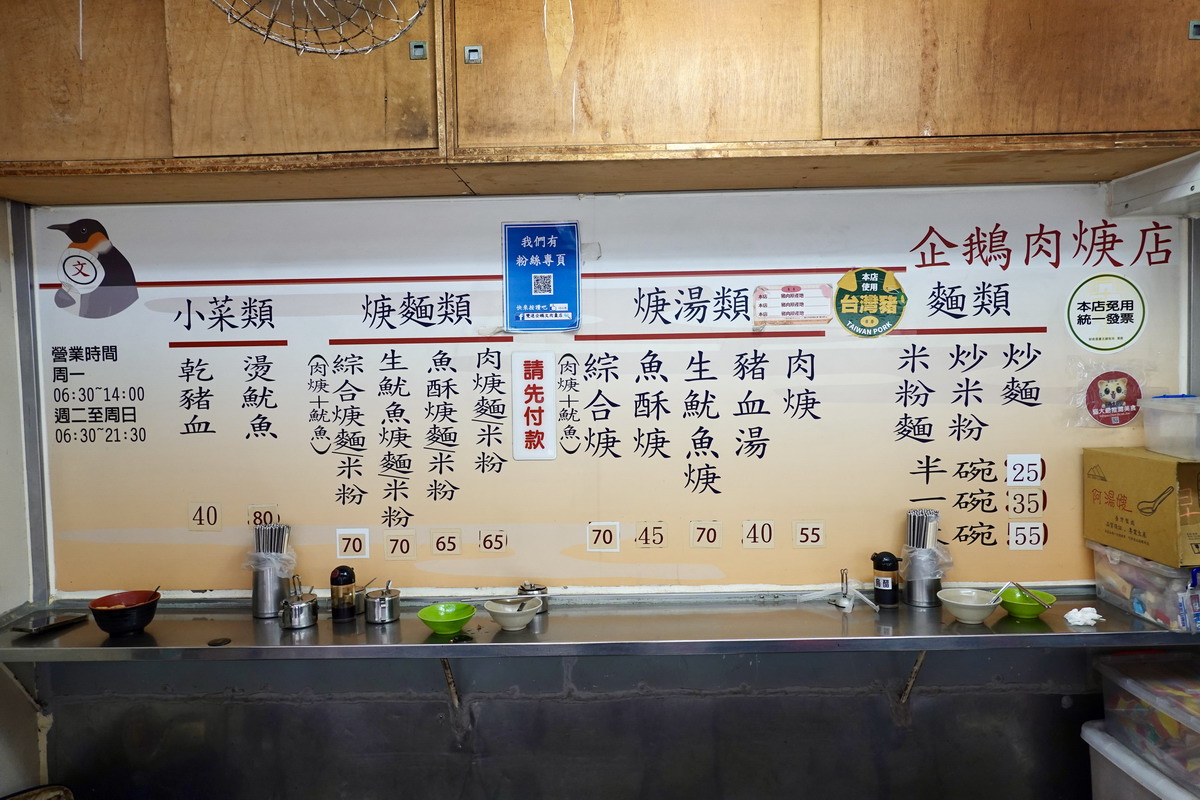 企鵝肉焿店
文
小菜類
焿麵類
焿湯類
麵類
我們有
粉絲專頁
快來按讚吧
本店
使用
台灣豬
TAIWAN PORK
本店免用
統一發票
營業時間
周一
06:30~14:00
週二至周日
06:30~21:30
乾豬血 40
燙魷魚 80
綜合焿麵/米粉 (肉焿+魷魚) 70
生魷魚焿麵/米粉 70
魚酥焿麵/米粉 65
肉焿麵/米粉 65
請先付款
綜合焿 (肉焿+魷魚) 70
魚酥焿 45
生魷魚焿 70
豬血湯 40
肉焿 55
米粉麵
炒米粉
炒麵
半碗 25
一碗 35
碗 55
阿湯燉